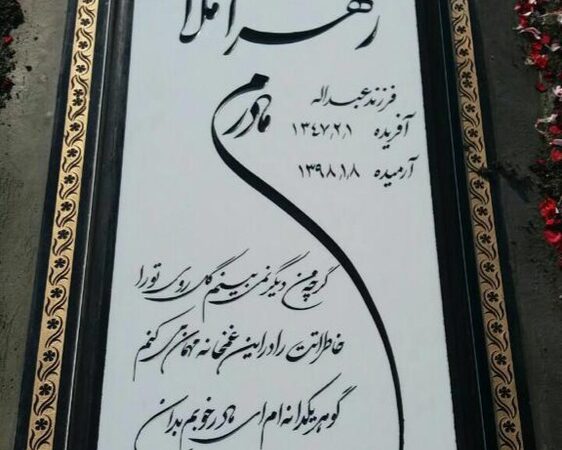 زهرا ملا
فرزند عبداله
مادرم
آفریده ۱۳۴۷٫۲٫۱
آرمیده ۱۳۹۸٫۱٫۸
گرچه من دیگر نمی بینم گل روی تو را
خاطراتت را در این غمخانه مهمان می کنم
گوهر یکدانه ام ای مادر خوبم بدان